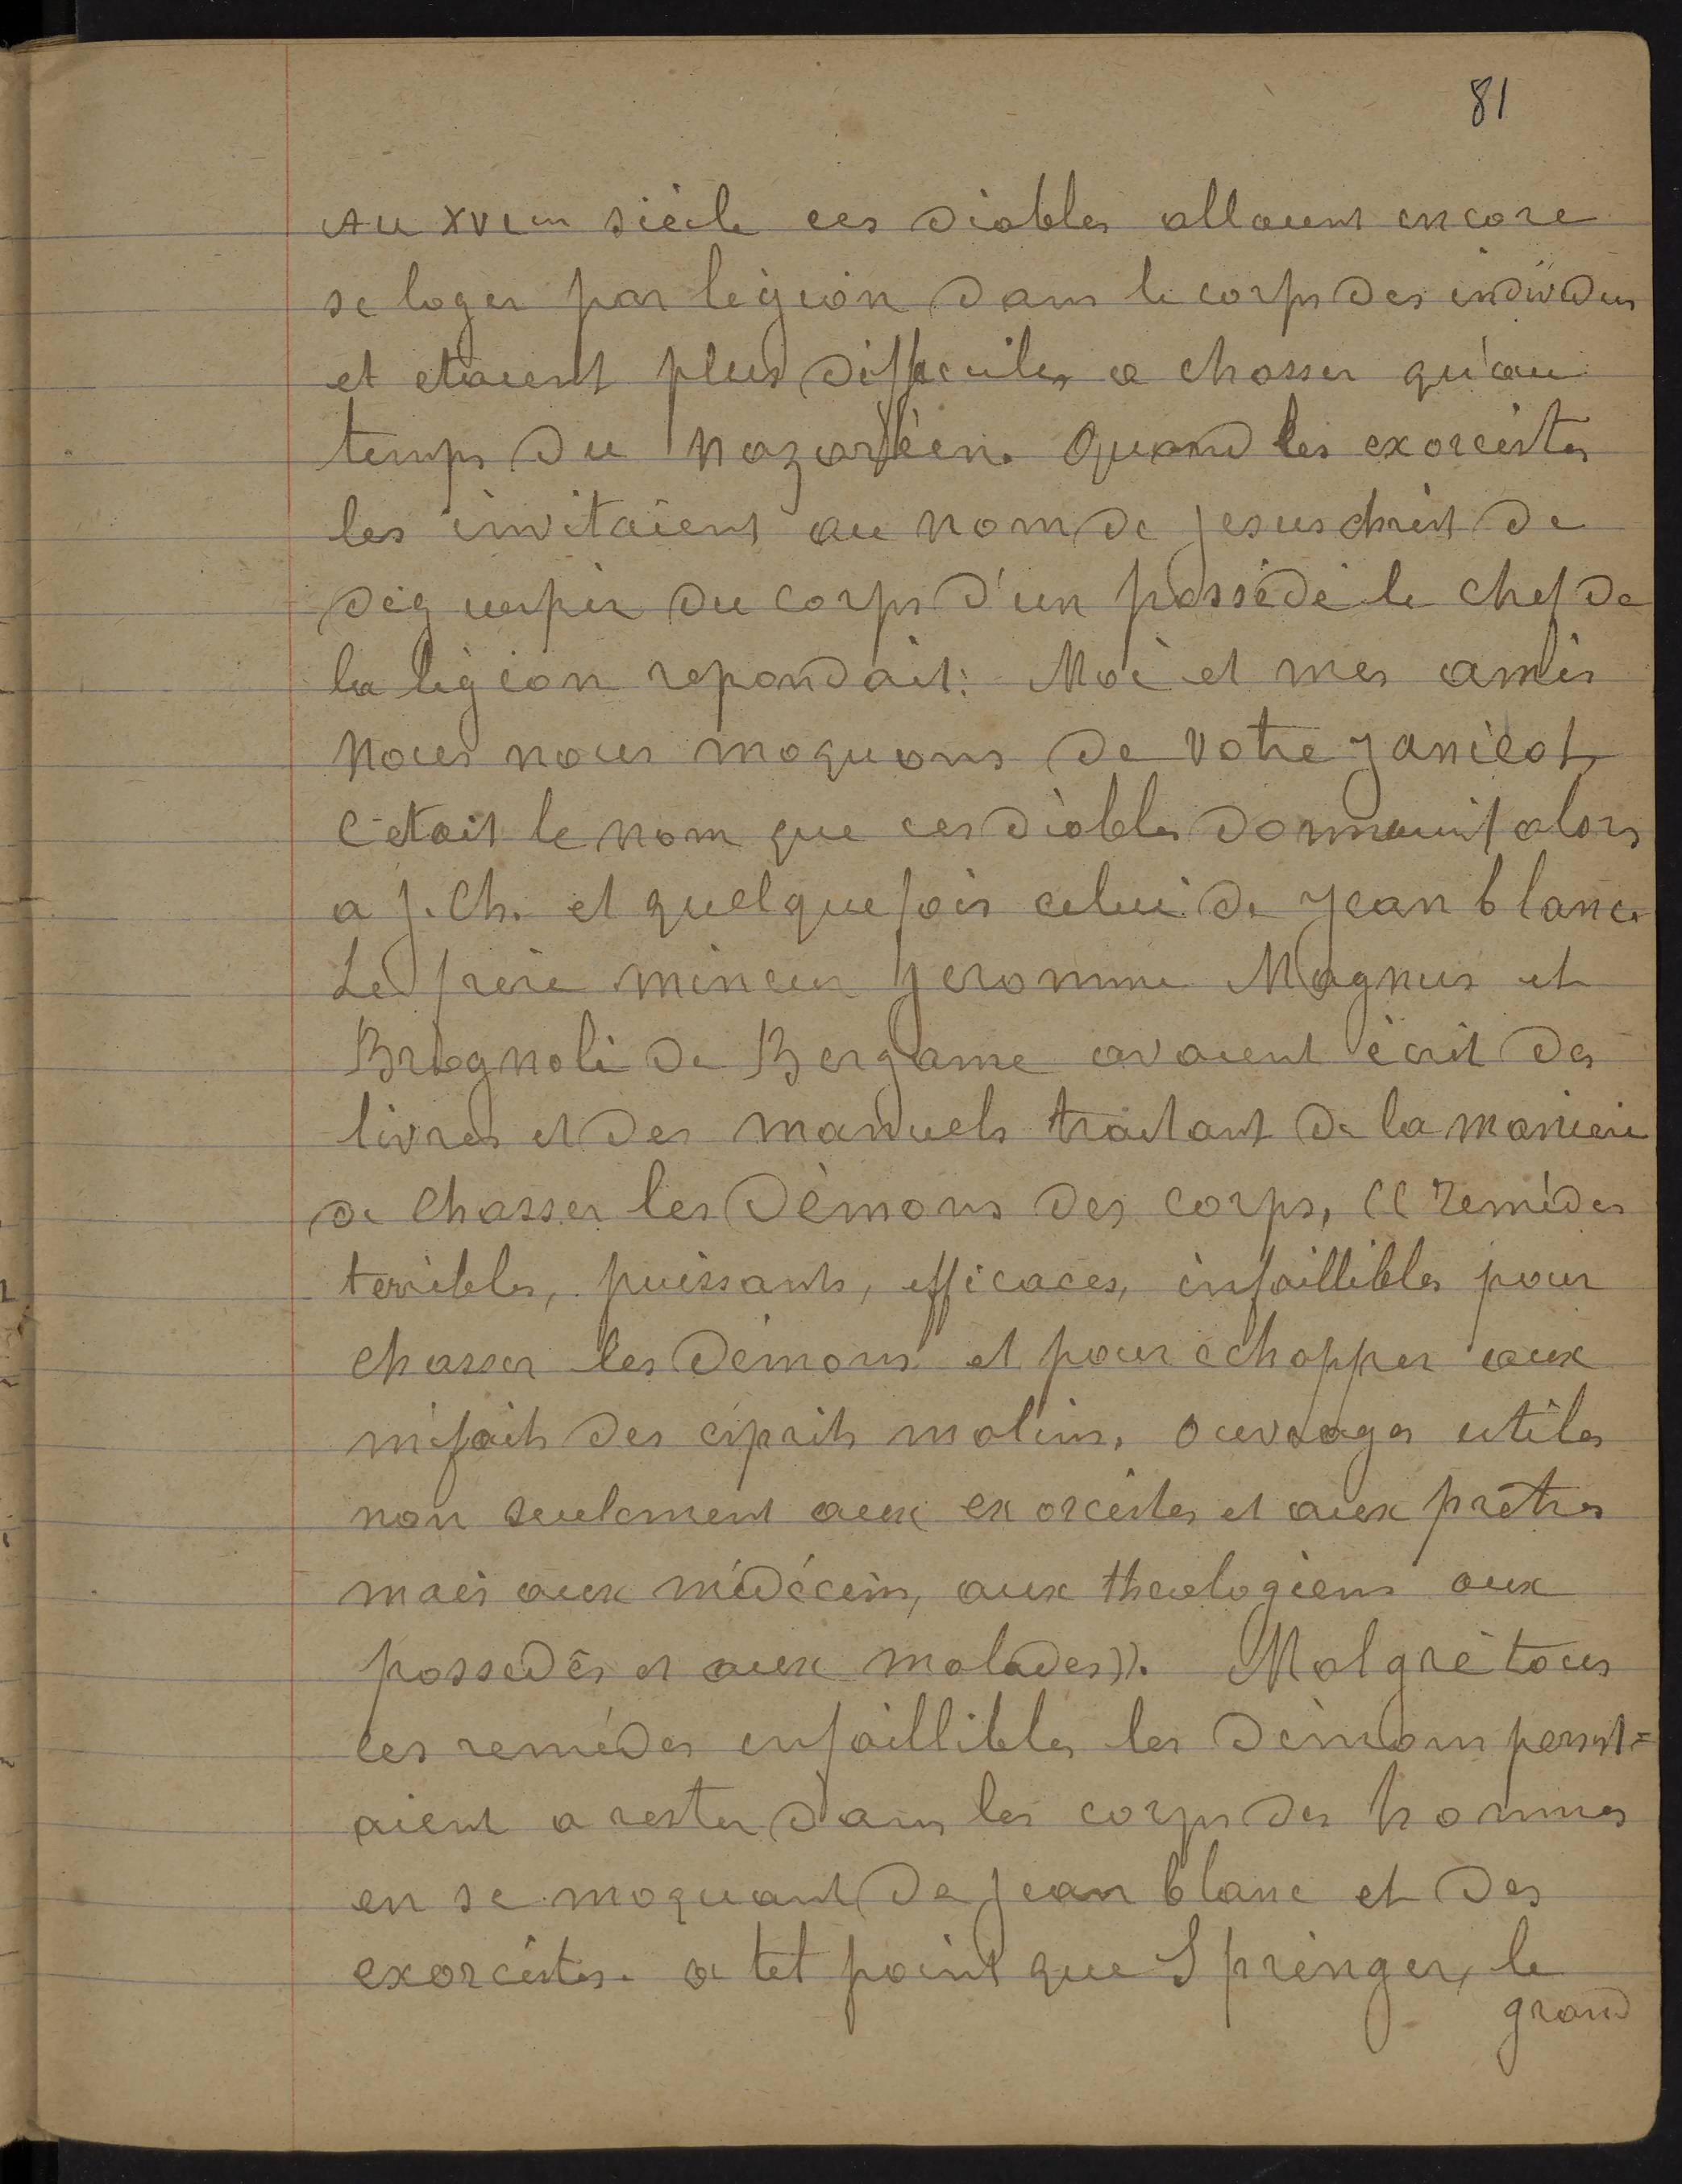 81
Au XVIem siècle ces diables allaient encore
se loger par légion dans le corps des individus
et etaient plus difficiles a chasser qu'au
temps du Nazaréen. Quand les exorcistes
les invitaient au nom de jesus christ de
déguerpir du corps d'un possédé le chef de
la légion repondait: Moi et mes amis
nous nous moquons de votre Janicot
C'etait le nom que ces diables donnaient alors
a J. Ch. et quelquefois celui de Jean blanc.
Le frère mineur Jeromme Magnus et
Brognoli de Bergame avaient écrit des
livres et des manuels traitant de la manière
de chasser les démons des corps, (( remèdes
terribles, puissants, efficaces, infaillibles pour
chasser les démons et pour echapper aux
méfaits des ésprits malins, ouvrages utiles
non seulement aux exorcistes et aux prêtres
mais aux médécins, aux theologiens aux
possedés et aux malades)). Malgré tous
ces remèdes infaillibles les démons persist=
aient a rester dans les corps des hommes
en se moquant de jean blanc et des
exorcistes. a tel point que Sprenger, le
grand